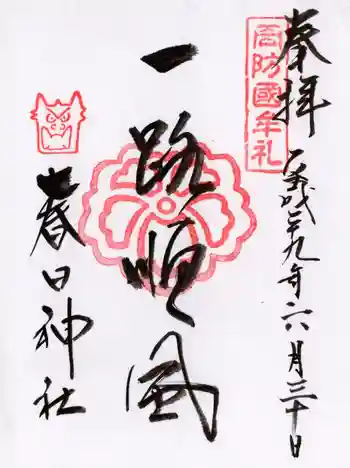 奉拝
周防國牟礼
平成二十九年六月三十日
一路順風
春日神社